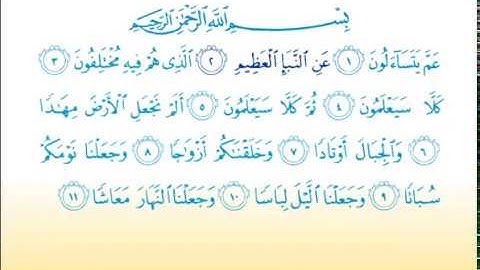 بِسْمِ اللَّهِ الرَّحْمَٰنِ الرَّحِيمِ
عَمَّ يَتَسَآءَلُونَ ١ عَنِ النَّبَإِ الْعَظِيمِ ٢ الَّذِى هُمْ فِيهِ مُخْتَلِفُونَ ٣
كَلَّا سَيَعْلَمُونَ ٤ ثُمَّ كَلَّا سَيَعْلَمُونَ ٥ أَلَمْ نَجْعَلِ الْأَرْضَ مِهَٰدًا
٦ وَالْجِبَالَ أَوْتَادًا ٧ وَخَلَقْنَٰكُمْ أَزْوَٰجًا ٨ وَجَعَلْنَا نَوْمَكُمْ
سُبَاتًا ٩ وَجَعَلْنَا الَّيْلَ لِبَاسًا ١٠ وَجَعَلْنَا النَّهَارَ مَعَاشًا ١١